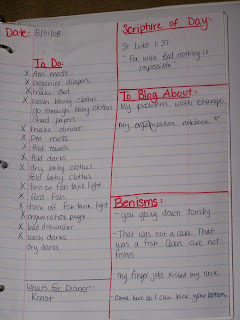 Date: 8/31/08
To Do:
X Am meds
X organize diapers
X make bed
X wash baby clothes
go through baby clothes
shred papers
X make dinner
X pm meds
X fold towels
X fold darks
X dry baby clothes
fold baby clothes
X turn on fish tank light
X feed fish
X turn off fish tank light
X organization pages
X load dishwasher
X wash darks
dry darks
What's for Dinner:
Roast
Scripture of Day:
St Luke 1:37
- For with God nothing is
impossible
To Blog About:
My problem with change.
My organization notebook
Benisms:
- you going down tomby
- That was not a cake. That
was a fish. Cakes are not
fishes
- my finger just kissed my neck.
- Come here so I can kick your bottom.